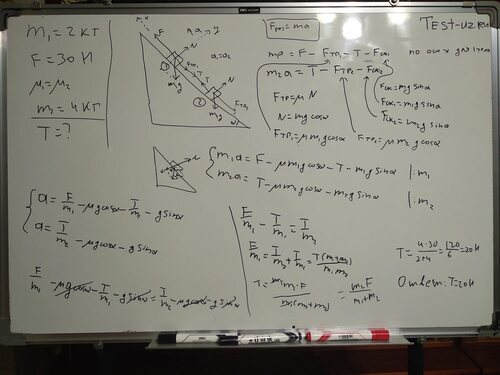 Test-uz.ru
m₁ = 2 кг
F = 30 Н
μ₁ = μ₂
m₂ = 4 кг
T = ?
x
F
a
y
N
a₁ = a₂
T
T
①
mg
N
②
Fтр₂
mg
α
Fрез = ma
ma = F - Fтр₁ - T - Fск₁
m₂a = T - Fтр₂ - Fск₂
Fтр = μN
N = mg cosα
Fтр₁ = μm₁g cosα
Fтр₂ = μm₂g cosα
Fск = mg sinα
Fск₁ = m₁g sinα
Fск₂ = m₂g sinα
m₁a = F - μm₁g cosα - T - m₁g sinα | : m₁
m₂a = T - μm₂g cosα - m₂g sinα | : m₂
a = F/m₁ - μg cosα - T/m₁ - g sinα
a = T/m₂ - μg cosα - g sinα
F/m₁ - μg cosα - T/m₁ - g sinα = T/m₂ - μg cosα - g sinα
F/m₁ - T/m₁ = T/m₂
F/m₁ = T/m₂ + T/m₁ = T(m₁+m₂)/m₁m₂
T = m₁m₂·F/m₁(m₁+m₂) = m₂F/m₁+m₂
T = 4·30/2+4 = 120/6 = 20 Н
Ответ: T = 20 Н